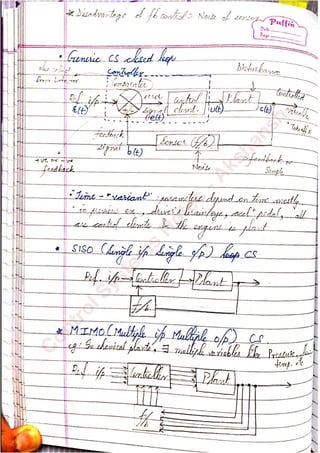 * Disadvantage of fb control: Noise of sensor
Puffin
Date
Page
• Generic CS closed loop
Controller
Disturbance
comparator
Controlled
variable
Ref i/p
error
signal
Control
Plant
r(t)
(e(t))
u(t)
c(t)
feedback
signal
b(t)
Sensor (f/b)
feedback
Noise
+ve or -ve
feedback
• Time - "variant" parameters depend on time mostly
in previous ex, driver's brain, legs, accl pedal, all
are control elements & the engine is plant
• SISO (Single i/p Single o/p) loop CS
Ref. i/p
Controller
Plant
f/b
* MIMO (Multiple i/p Multiple o/p) CS
eg: In chemical plants, ∃ multiple variables like Pressure,
temp. etc
Ref i/p
Controller
Plant
f/b